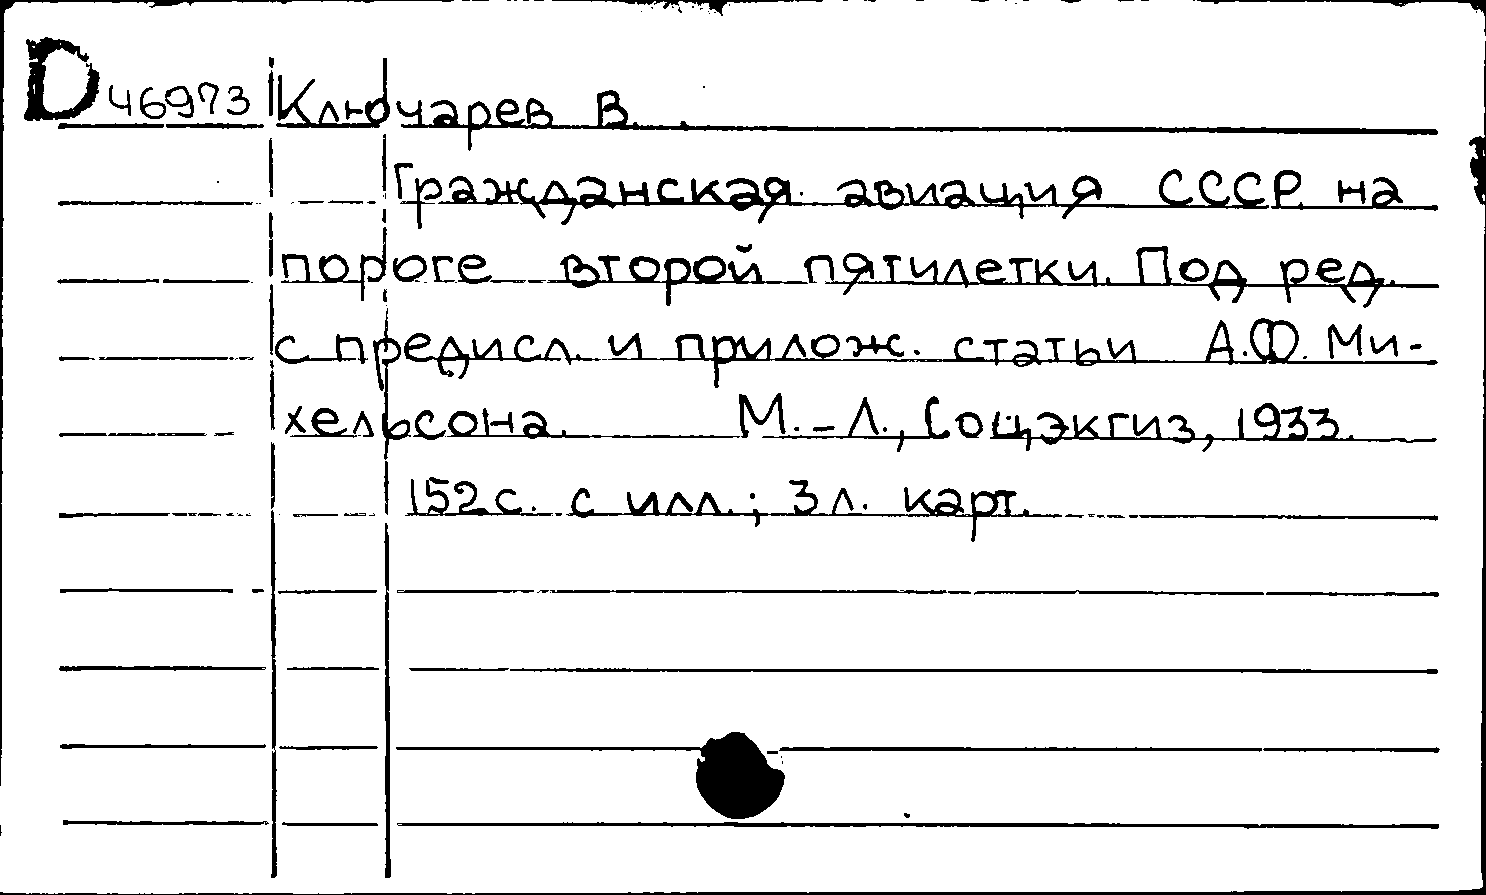 D 46973 Ключарев В.
Гражданская авиация СССР на
пороге второй пятилетки. Под ред.
с предисл. и прилож. статьи А.Ф. Ми-
хельсона. М.-Л., Соцэкгиз, 1933.
152 с. с илл.; 3 л. карт.